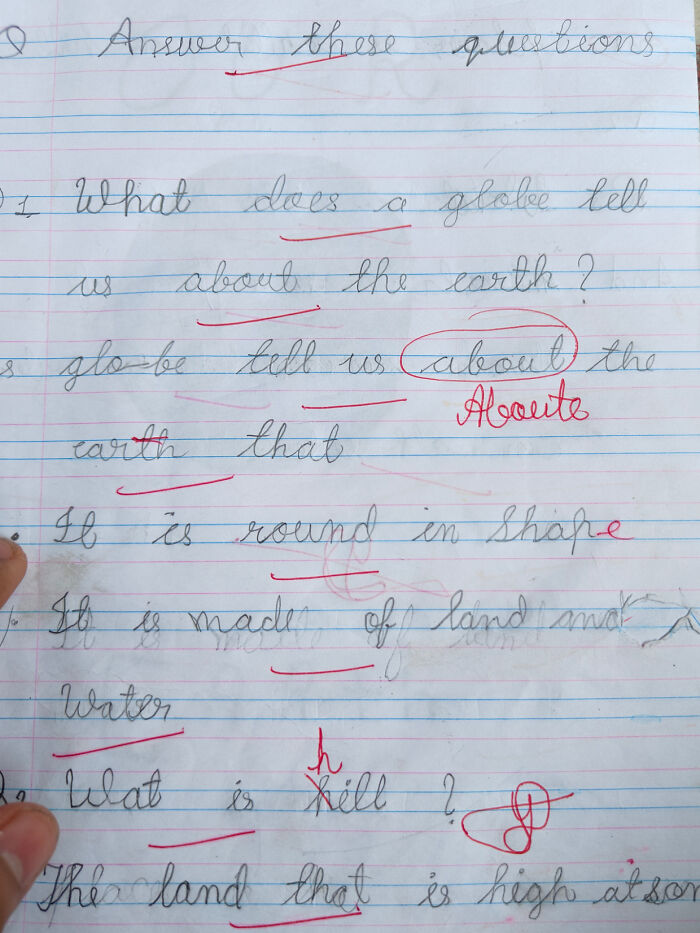 Answer these questions
1 What does a globe tell
us about the earth?
s globe tell us about the
Aboute
earth that
It is round in shape
It is made of land and
Water
h
2. Wat is hill ?
The land that is high at som